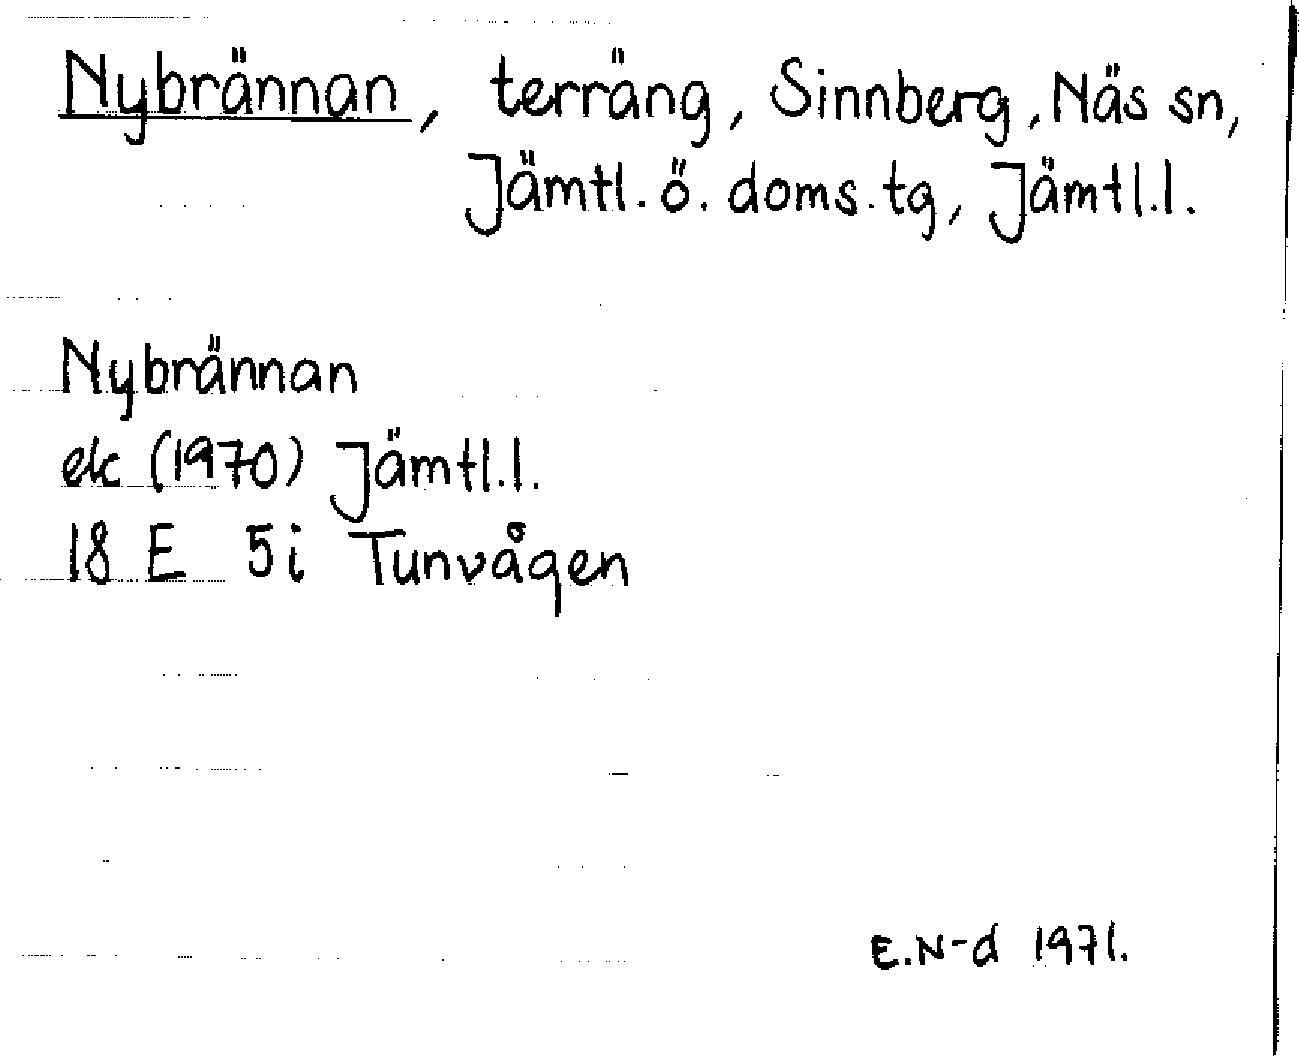 Nybrännan, terräng, Sinnberg, Näs sn,
Jämtl. ö. doms. tg, Jämtl.l.
Nybrännan
ek (1970) Jämtl.l.
18 E 5i Tunvågen
E.N-d 1971.